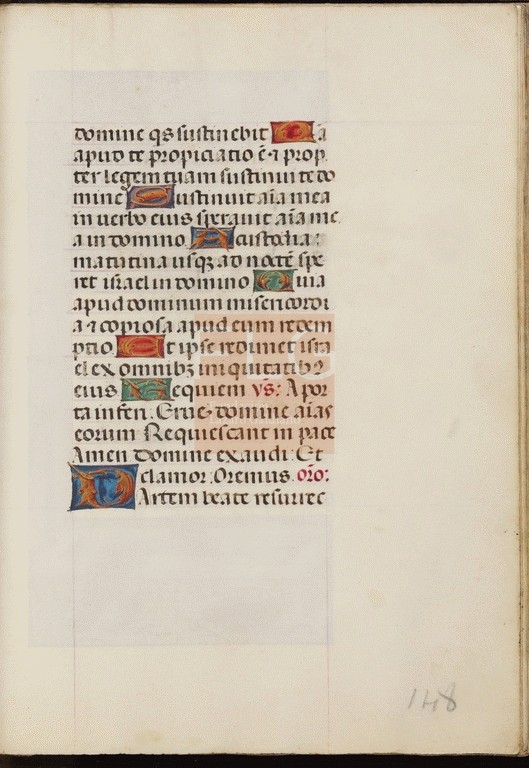 domine q̄s sustinebit Q̄a
apud te propiciatio ē ⁊ prop
ter legem tuam sustinui te do
mine Sustinuit aīa mea
in verbo eius speravit aīa me
a in domino A custodia
matutina usqꝫ ad noctē spe
ret israel in domino Quia
apud dominum misericordi
a ⁊ copiosa apud eum redem
ptio Et ipse redimet isra
el ex omnibꝫ iniquitatibꝰ
eius Requiem vs̄: A por
ta inferi: Erue domine aīas
eorum Requiescant in pace
Amen domine exaudi: Et
clamor: Oremus. orō:
Partem beate resurrec
148